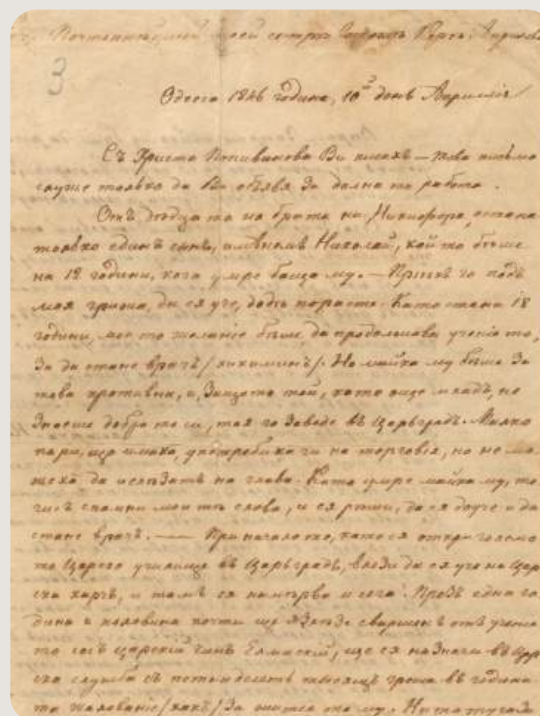 Почтеннѣйшей моей сестрѣ
3
Одесса 1846 година, 10й день Априлія
Съ Христа Попиванова Ви писахъ — това письмо
служи толкко да Ви объявя за долната работа.
Отъ дѣцата на брата ни Никифора, остана
толкко единъ сынъ, именемъ Николай, който бѣше
на 12 години, кога умре баща му. — Пріехъ го подъ
моя грижа, да ся учи, додѣ порасте. Като стана 18
години, мое то желаніе бѣше да продолжава ученіе то,
за да стане врачъ / хикиминъ /. Но майка му бѣше за
това противна, и, защото той, като още младъ, не
знаеше добро то си, тая го заведе въ Царьградъ. Малко
пари, що имаха, употребиха ги на торговія, но не мо
жеха да излѣзатъ на глава. Като умре майка му, то
гисъ спомни мои тѣ слова, и ся рѣши, да ся доучи и да
стане врачъ. — При начало то, като ся откри големо
то Царско училище въ Царьградъ, влези да ся учи на Цар
ска харчь, и тамъ ся намѣрва и сега. Прозъ една го
дина и половина почти ще излѣзе свершенъ отъ учили
то съ царскій чинъ, ще ся назначи въ Цар
ска служба съ тысящь гроша въ година
та жалованіе / хакъ / за живота му.